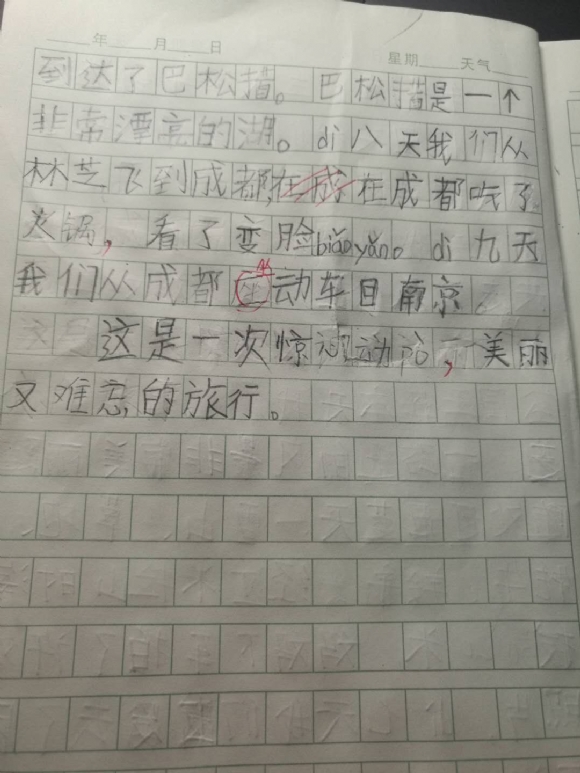 年 月 日 星期 天气
到达了巴松措。巴松措是一个
非常漂亮的湖。di八天我们从
林芝飞到成都,在成都吃了
火锅,看了变脸biǎoyǎn。di九天
我们从成都坐动车回南京。
这是一次惊心动,美丽
又难忘的旅行。